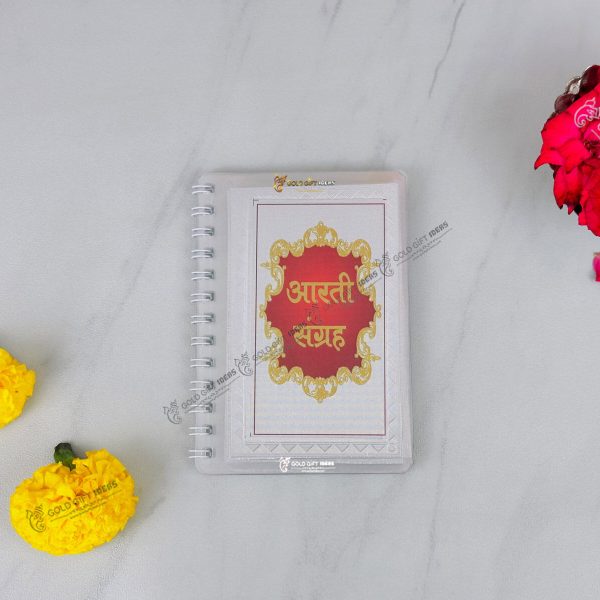 GOLD GIFT IDEAS
GOLD GIFT IDEAS
आरती
संग्रह
GOLD GIFT IDEAS
GOLD GIFT IDEAS
GOLD GIFT IDEAS